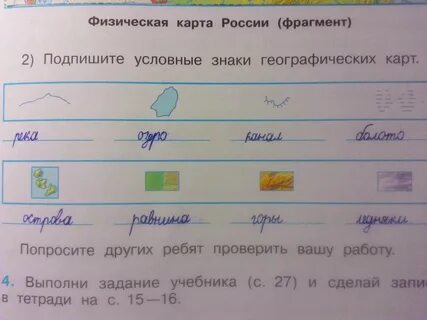 Физическая карта России (фрагмент)
2) Подпишите условные знаки географических карт.
река озеро канал болото
острова равнина горы ледники
Попросите других ребят проверить вашу работу.
4. Выполни задание учебника (с. 27) и сделай запис
в тетради на с. 15—16.